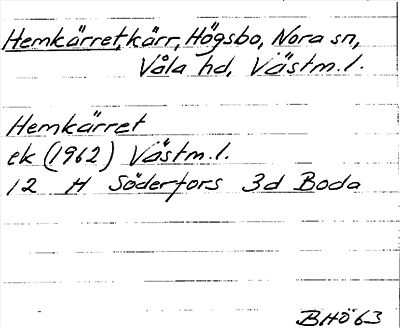 Hemkärret, kärr, Högsbo, Nora sn,
Våla hd, Västm. l.
Hemkärret
ek (1962) Västm. l.
12 H Söderfors 3d Boda
BHö 63